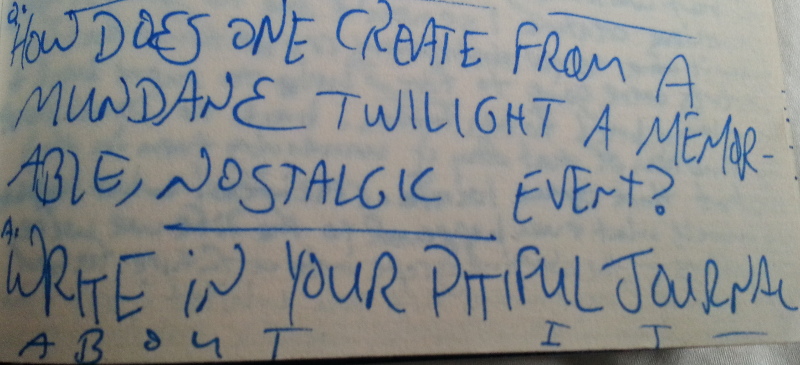 Q:
HOW DOES ONE CREATE FROM A
MUNDANE TWILIGHT A MEMOR-
ABLE, NOSTALGIC EVENT?
A:
WRITE IN YOUR PITIFUL JOURNAL
ABOUT IT